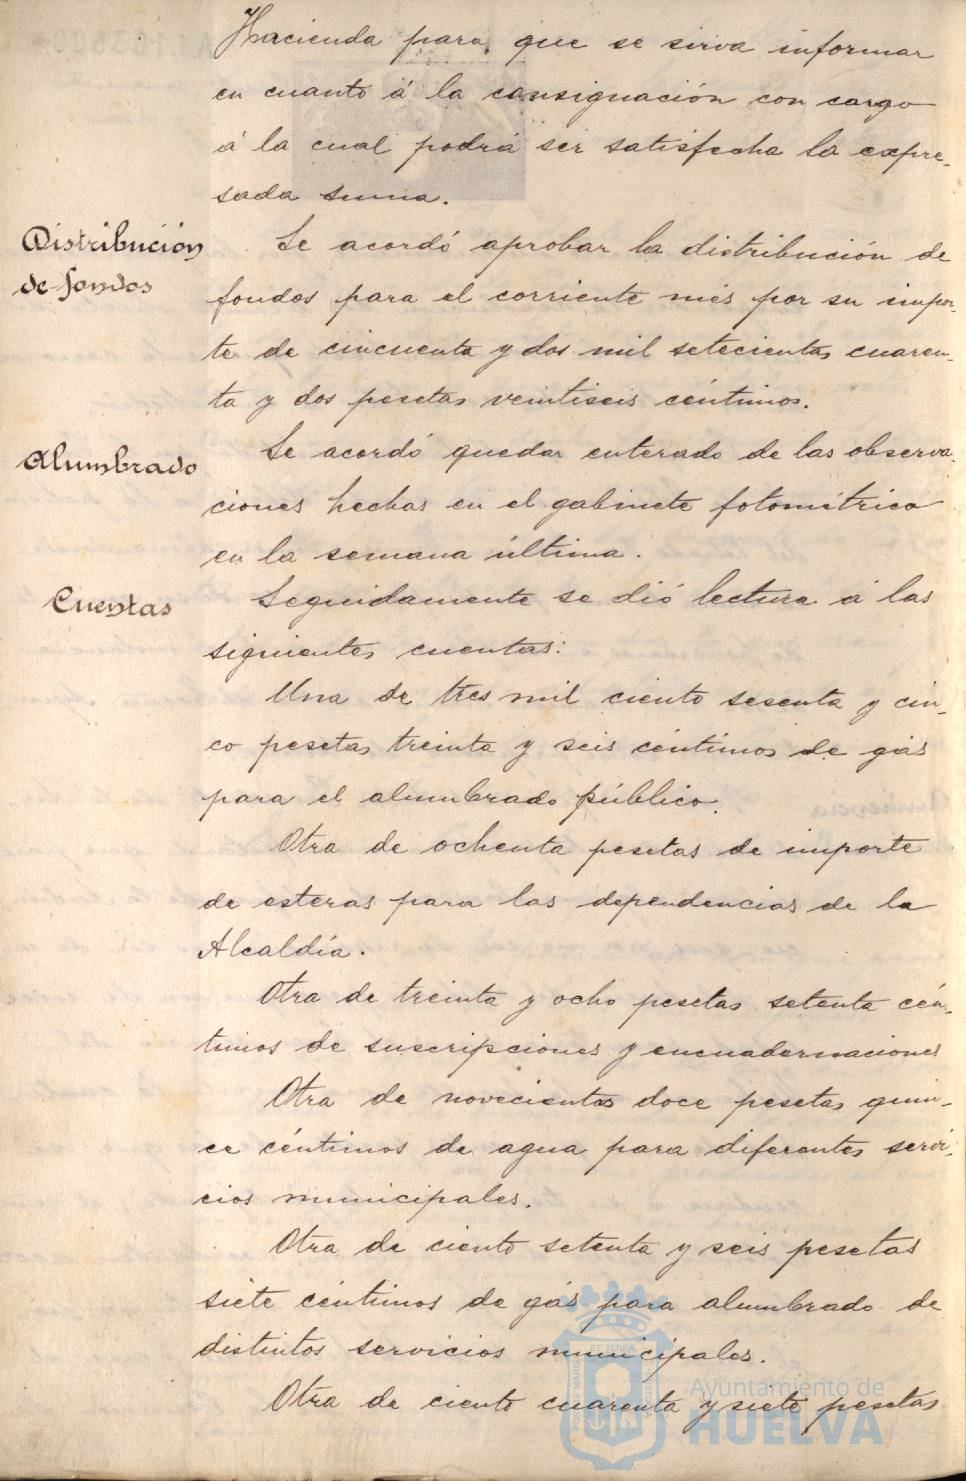 Hacienda para que se sirva informar
en cuanto á la consignación con cargo
á la cual podrá ser satisfecha la expre-
sada suma.
Distribución
de fondos
Se acordó aprobar la distribución de
fondos para el corriente més por su impor-
te de cincuenta y dos mil setecientas cuaren-
ta y dos pesetas veintiseis céntimos.
Alumbrado
Se acordó quedar enterado de las observa-
ciones hechas en el gabinete fotométrico
en la semana última.
Cuentas
Seguidamente se dió lectura á las
siguientes cuentas:
Una de tres mil ciento sesenta y cin-
co pesetas treinta y seis céntimos de gás
para el alumbrado público.
Otra de ochenta pesetas de importe
de esteras para las dependencias de la
Alcaldía.
Otra de treinta y ocho pesetas setenta cén-
timos de suscripciones y encuadernaciones
Otra de novecientas doce pesetas quin-
ce céntimos de agua para diferentes servi-
cios municipales.
Otra de ciento setenta y seis pesetas
siete céntimos de gás para alumbrado de
distintos servicios municipales.
Otra de ciento cuarenta y siete pesetas
Ayuntamiento de
HUELVA